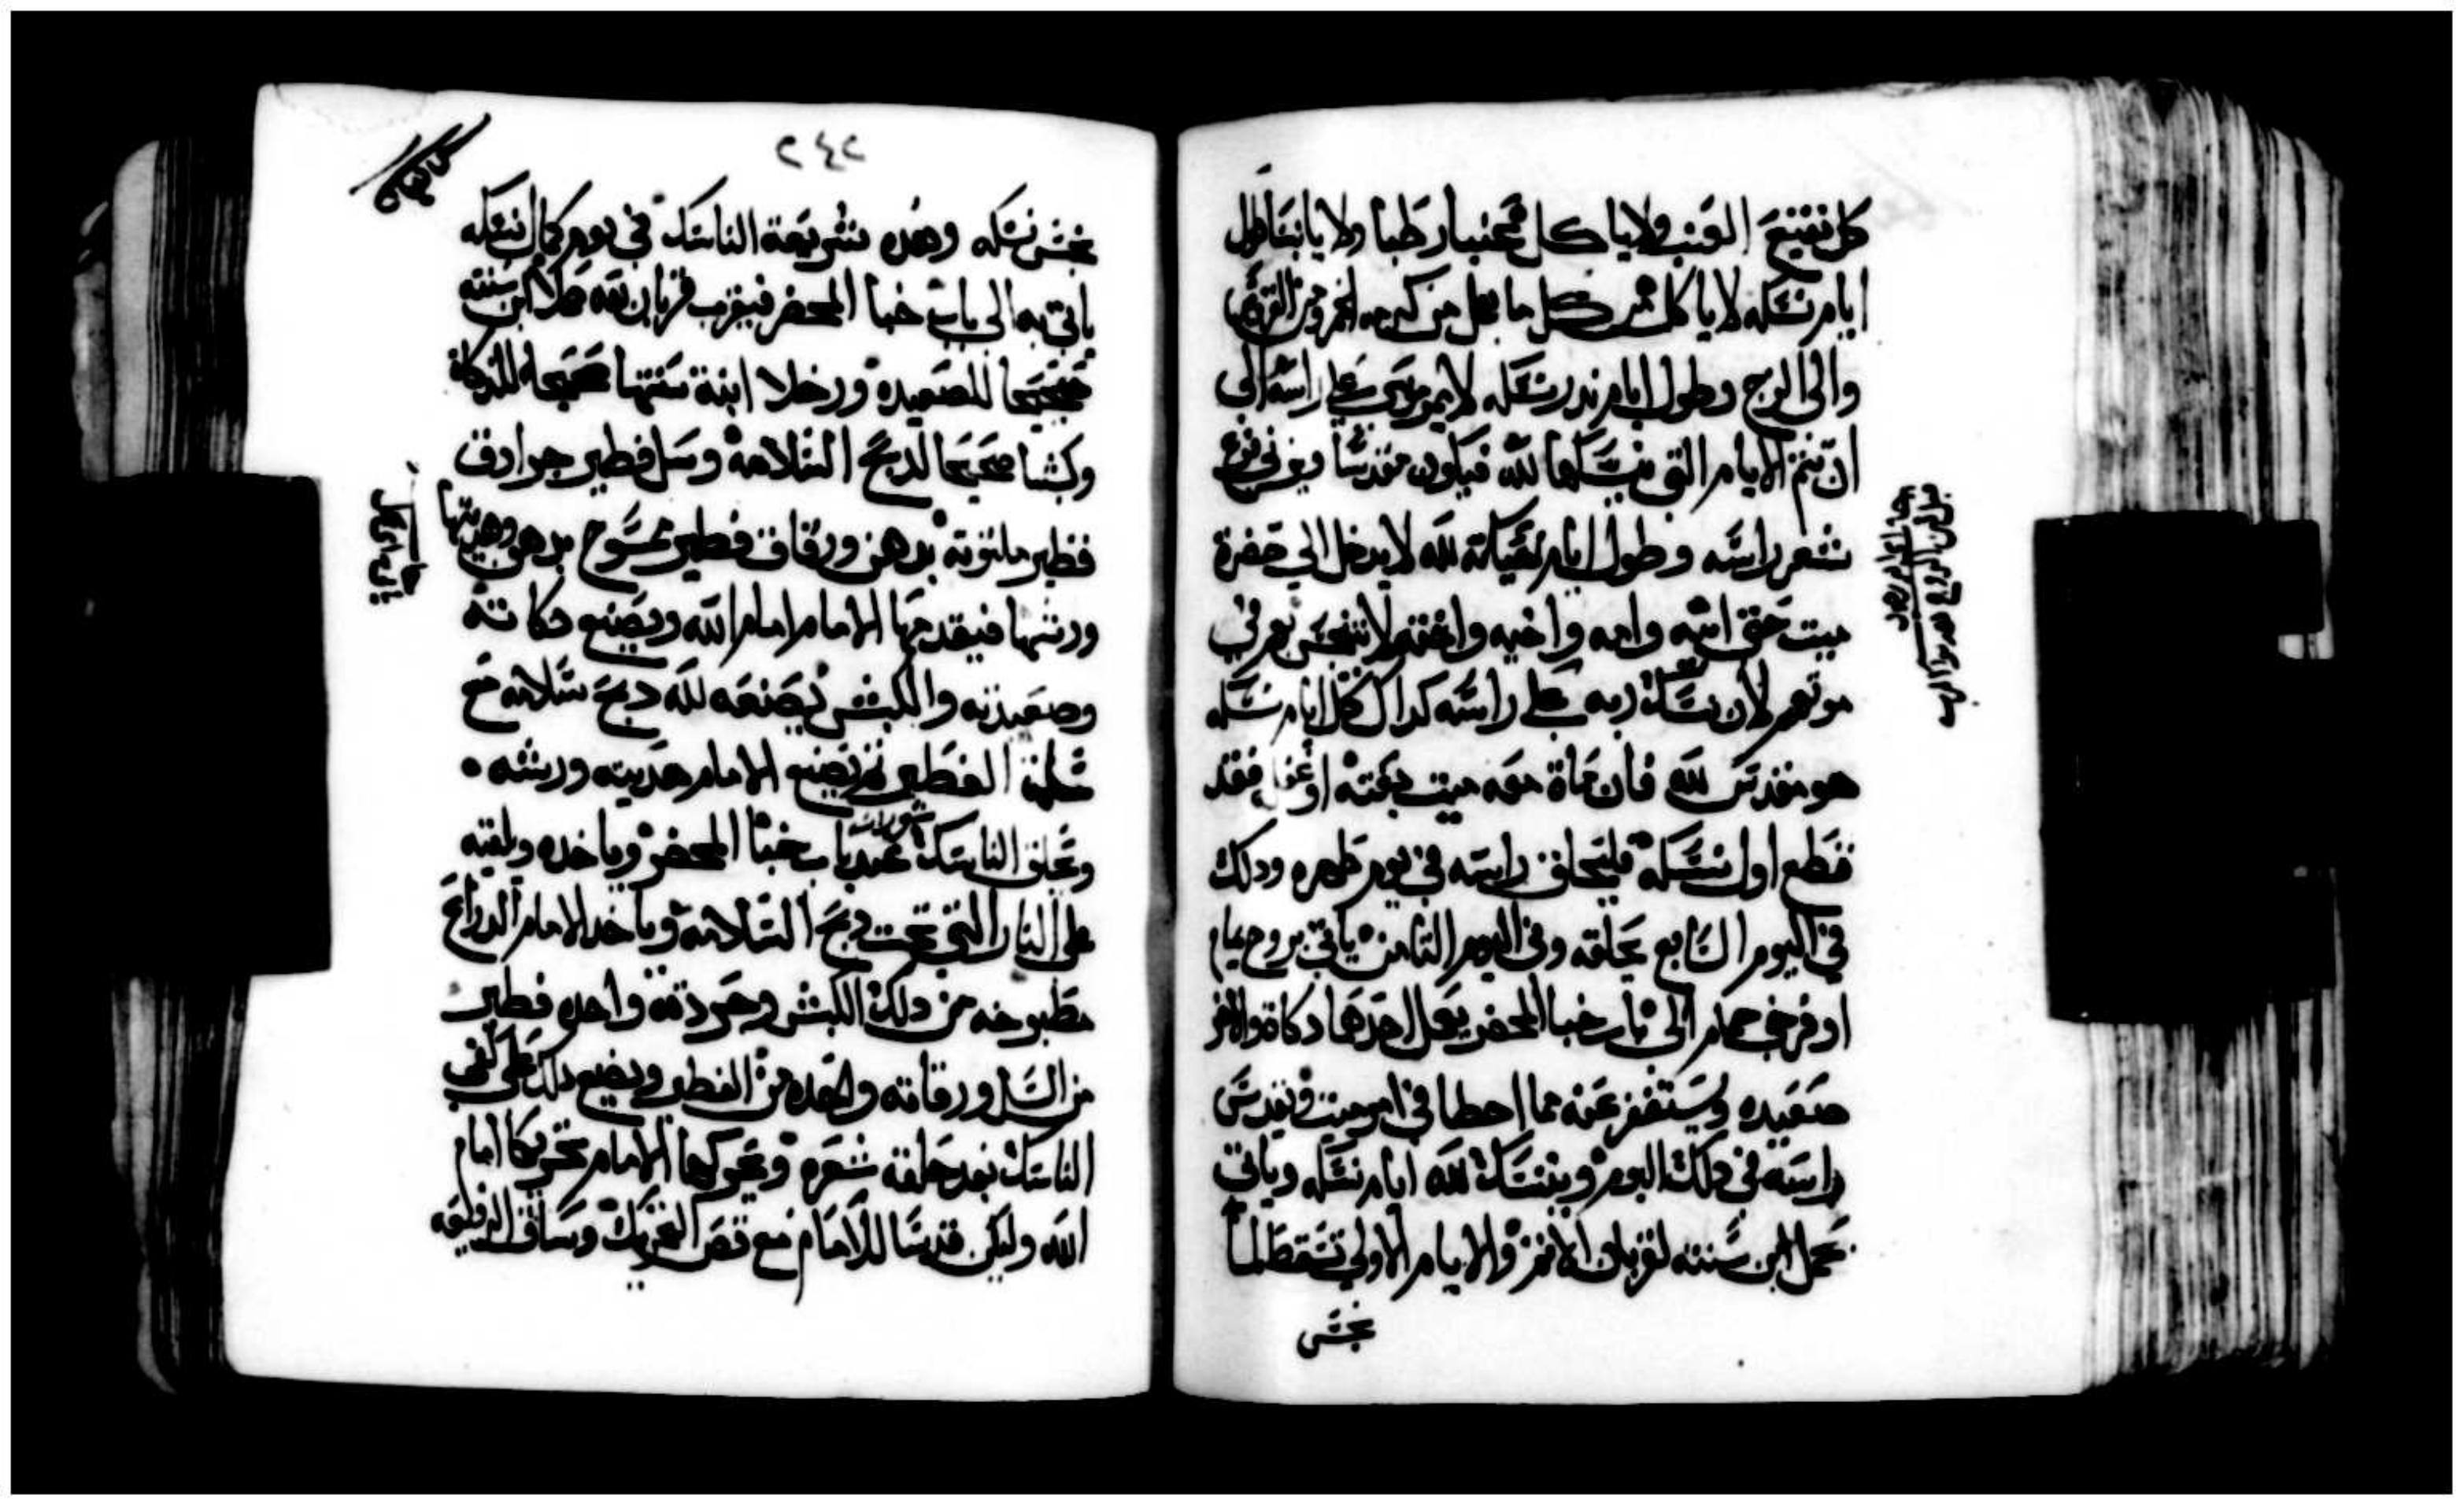 كل نقيع العنب ولا ياكل عنبا رطبا ولا يابسا طول
ايام نسكه لا ياكل من كل ما يعمل من كرمه الخمر ومن
والى الزج وطول ايام ندر نسكه لا يمر موسى على راسه الى
ان تتم الايام التي ينسكها لله فيكون مقدسا ويربي فرع
شعر راسه وطول ايام نسكه لله لا يدخل الي حضرة
ميت حتى ابيه وامه واخيه واخته لا يتنجس بهم في
موتهم لان نسك ربه على راسه كداك كل ايام نسكه
هو مقدس لله فان مات معه ميت بغتة او غفل فقد
قطع اول نسكه فليحلق راسه في يوم طهره ودلك
في اليوم السابع يحلقه وفي اليوم الثامن ياتي بزوج يمام
او فرخي حمام الى باب خبا المحضر يعمل احدهما دكاة والاخر
صعيده ويستغفر عنه مما اخطا في امر ميت ويقدس
راسه في دلك اليوم ويتنسك لله ايام نسكه وياتي
بحمل ابن سنته لقربان الاثم والايام الاولي تسقط لما
نجس
٢٤٢
نجس نسكه وهده شريعة الناسك في يوم كمال نسكه
ياتي به الى باب خبا المحضر فيقرب قربان لله حملا ابن سنته
صحيحا للصعيده ورخلا ابنة سنتها صحيحا للدكاة
وكبشا صحيحا لدبح السلامة وسل فطير جرادق
فطير ملتوتة بدهن ورقاق فطير ممسوح بدهن وهديتها
ورشها فيقدمها الامام امام الله ويصنع دكاته
وصعيدته والكبش يصنعه لله دبح سلامه مع
سلة الفطير ثم يصنع الامام هديته ورشه ٠
ويحلق الناسك عند باب خبا المحضر وياخده ويلقيه
على النار التي تحت دبح السلامة وياخد الامام الدراع
مطبوخه من دلك الكبش وجردقة واحده فطير
من السل ورقاقه واحده من الفطير ويضع دلك على كفي
الناسك بعد حلقه شعره ويحركها الامام تحريكا امام
الله وليكن قدسا للامام مع قص التحريك وساق الرفيعه